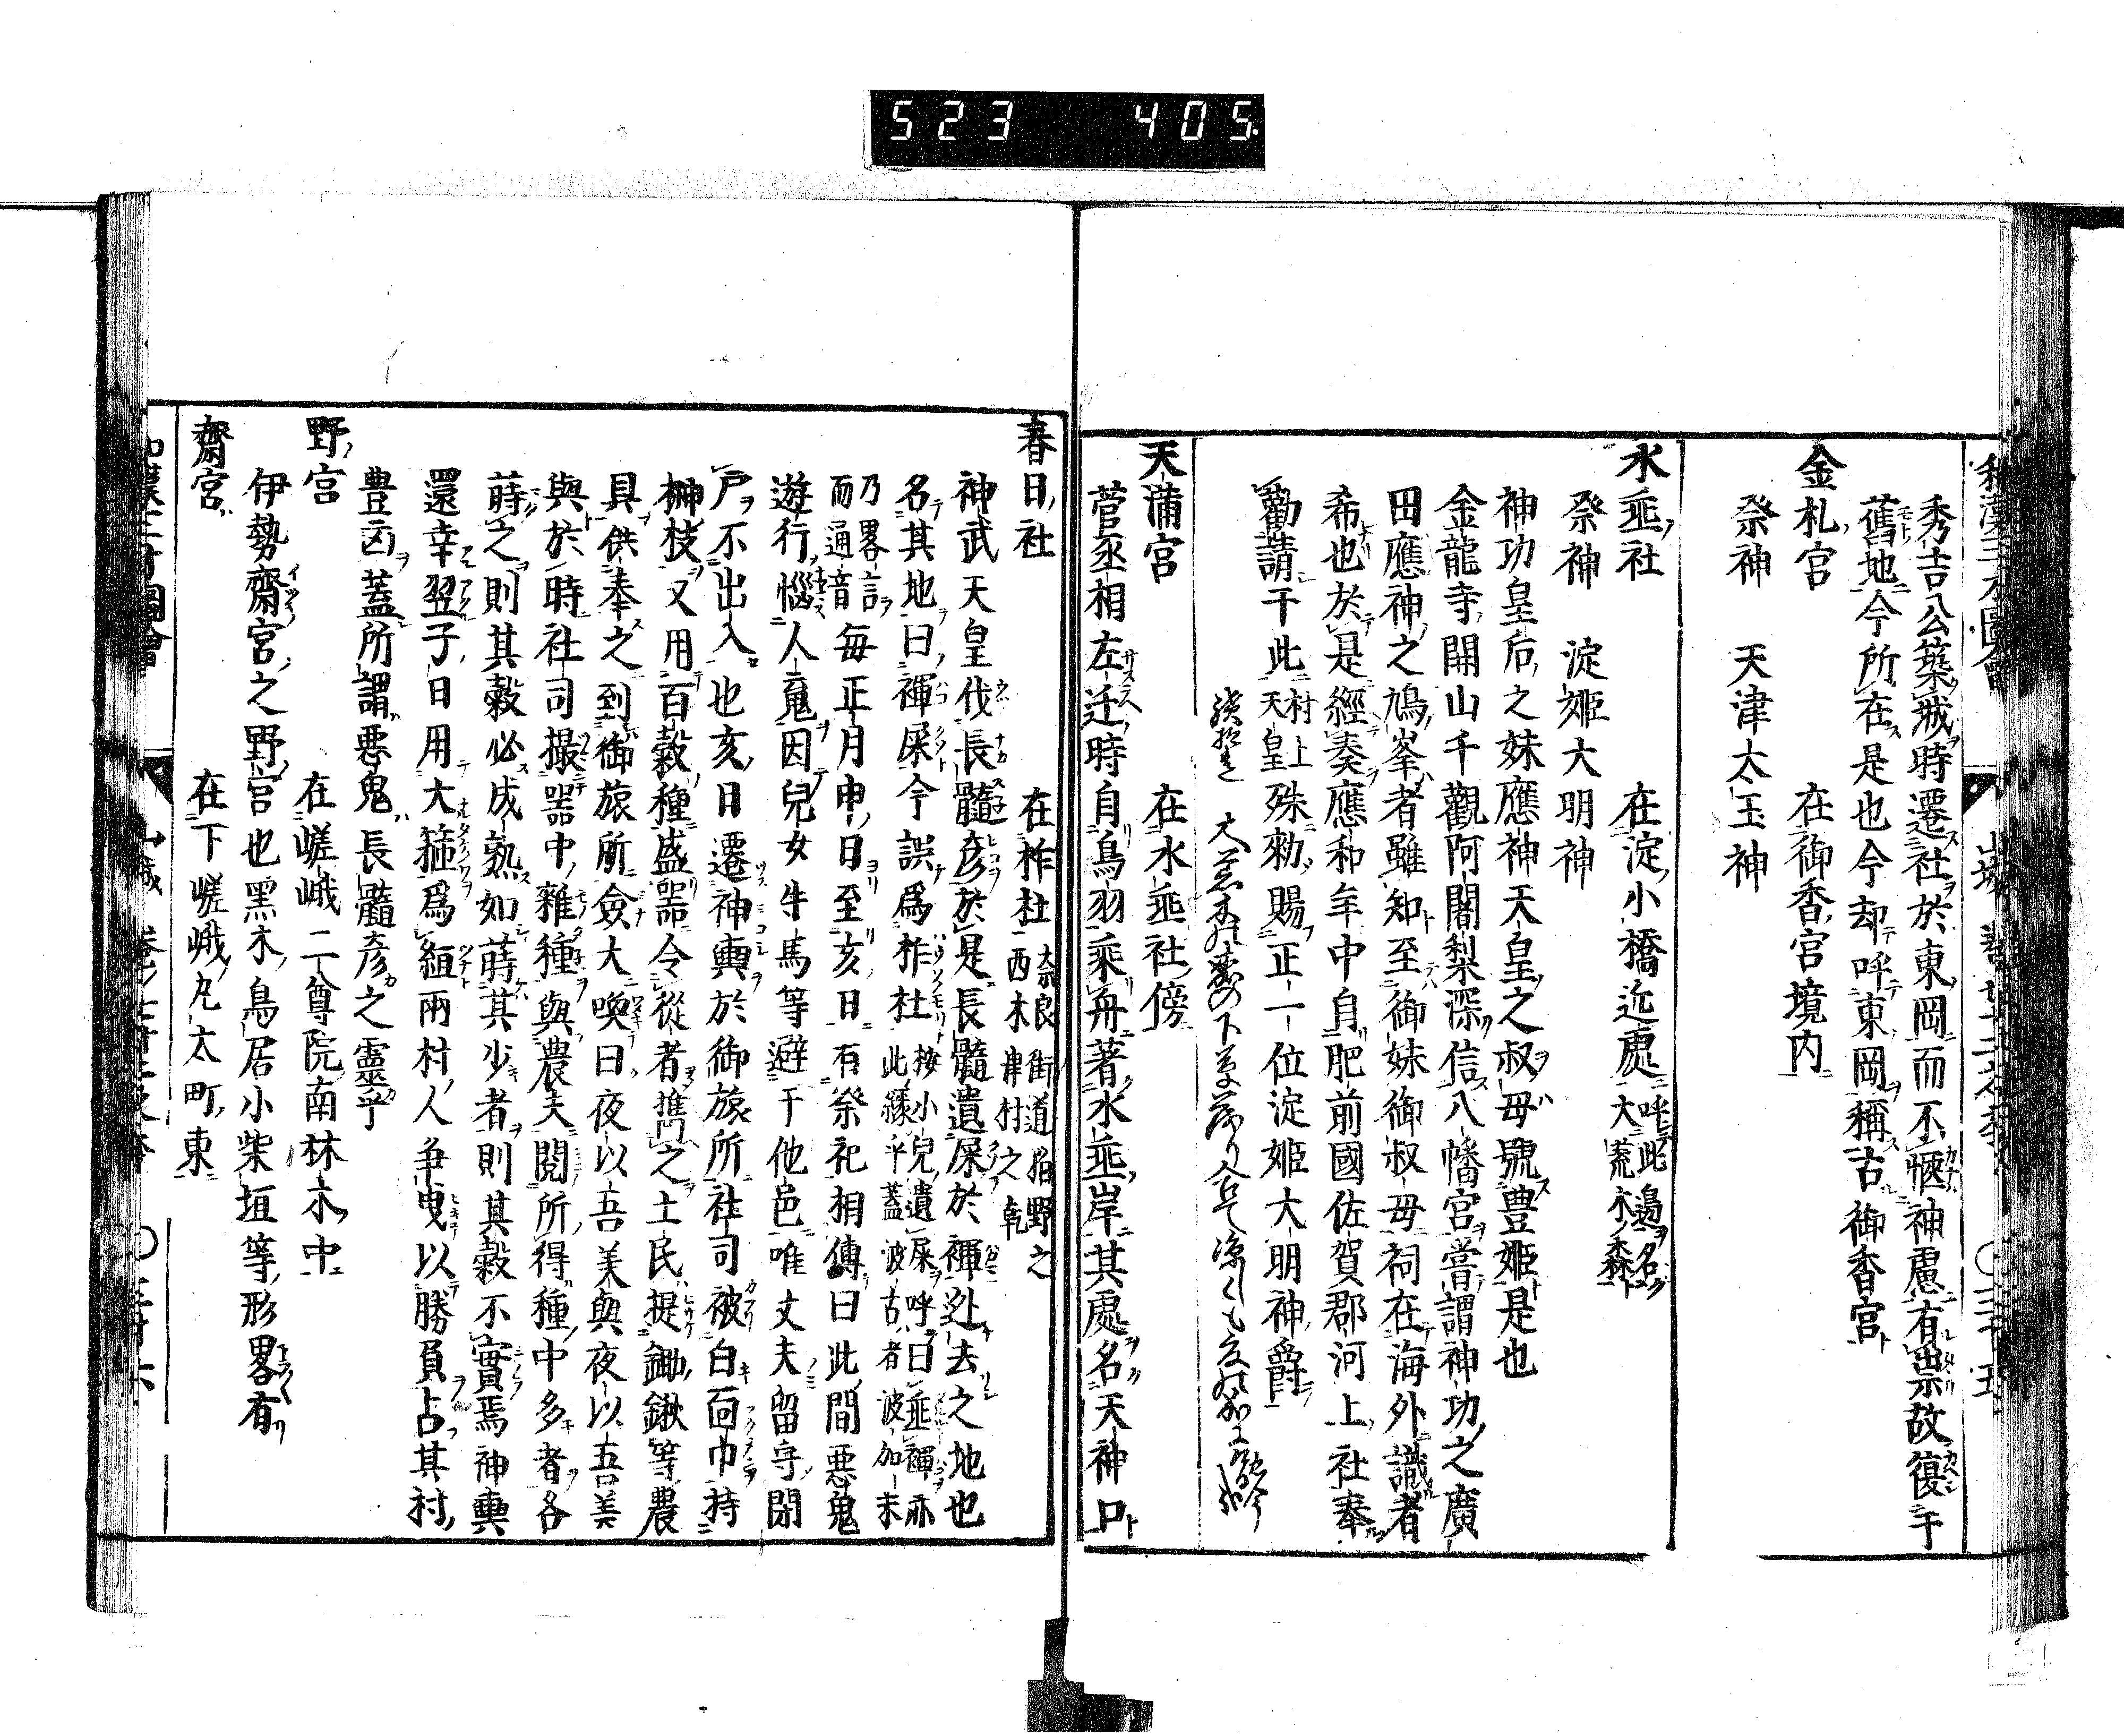 523 405
秀吉公築城時遷社於東岡而不愜神慮有祟故復于
舊地今所在是也今却呼東岡稱古御香宮
金札宮 在御香宮境内
祭神 天津太玉神
水垂社 在淀小橋近處 呼此邊名大荒木森
祭神 淀姫大明神
神功皇后之妹應神天皇之叔母號豊姫是也
金龍寺開山千觀阿闍梨深信八幡宮嘗謂神功之廣
田應神之鳩峯者雖知至御妹御叔母祠在海外識者
希也於是經奏應和年中自肥前國佐賀郡河上社奉
勸請于此 村上天皇 殊勅賜正一位淀姫大明神爵
天滿宮 在水垂社傍
菅丞相左迁時自鳥羽乘舟著水垂岸其處名天神口
春日社 在柞杜 奈良街道狛野之西木津村之乾
神武天皇伐長髓彦於是長髓遺屎於褌迯去之地也
名其地曰褌屎今誤爲柞杜 按小兒遺屎呼曰垂褌亦此縁乎蓋波古者波加末
乃畧言而通音 毎正月申日至亥日有祭祀相傳曰此間悪鬼
遊行惱人䰟因兒女牛馬等避于他邑唯丈夫留守閉
戸不出入也亥日遷神輿於御旅所社司被白面巾持
榊枝又用百穀種盛噐令從者携之土民提鋤鍬等農
具供奉之到御旅所僉大喚曰夜以吾美與夜以吾美
與於時社司撮噐中雜種與農夫閲所得種中多者各
蒔之則其穀必成熟如蒔其少者則其穀不實焉神輿
還幸翌子日用大箍爲絙兩村人争曳以勝負占其村
豊凶蓋所謂悪鬼長髓彦之靈乎
野宮 在嵯峨二尊院南林木中
伊勢齋宮之野宮也黑木鳥居小柴垣等形畧有
齋宮 在下嵯峨丸太町東